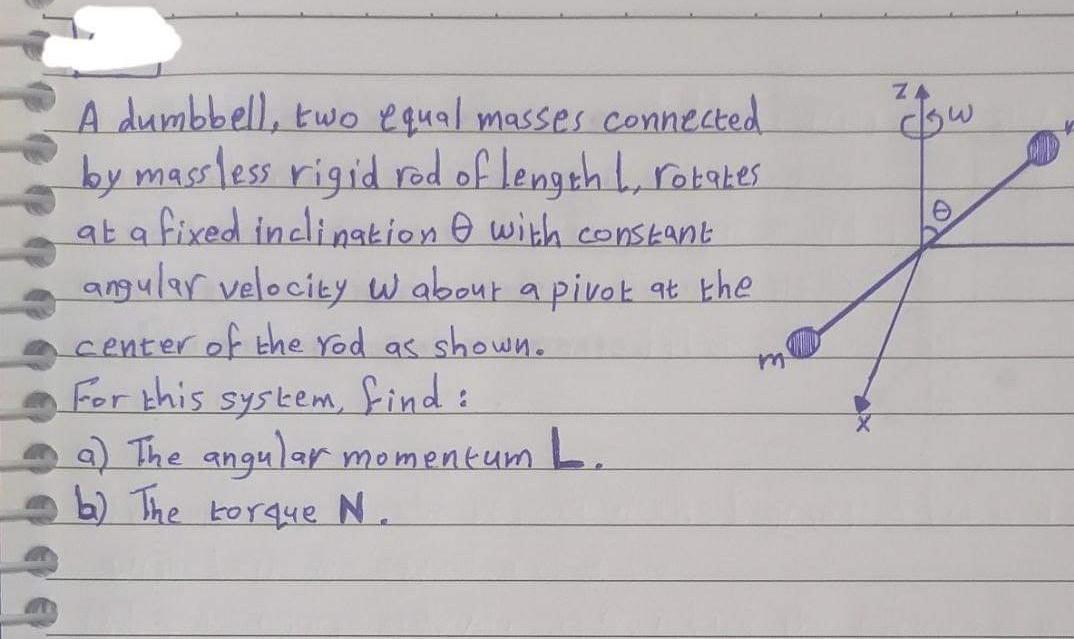 A dumbbell, two equal masses connected
by massless rigid rod of length l, rotates
at a fixed inclination θ with constant
angular velocity w abour a pivot at the
center of the rod as shown.
For this system, find :
a) The angular momentum L.
b) The torque N.
z
w
θ
m
x